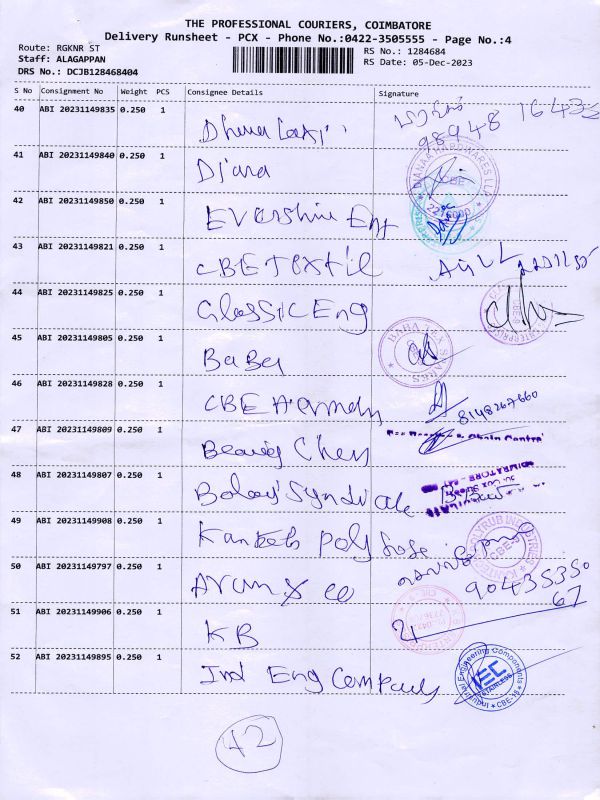 THE PROFESSIONAL COURIERS, COIMBATORE
Delivery Runsheet - PCX - Phone No.:0422-3505555 - Page No.:4
Route: RGKNR ST
RS No.: 1284684
Staff: ALAGAPPAN
RS Date: 05-Dec-2023
DRS No.: DCJB128468404
S No Consignment No Weight PCS Consignee Details Signature
40 ABI 20231149835 0.250 1
98948 16435
41 ABI 20231149840 0.250 1 Diana
42 ABI 20231149850 0.250 1 Evershine Eng
43 ABI 20231149821 0.250 1 CBE Textil
44 ABI 20231149825 0.250 1 Classic Eng
45 ABI 20231149805 0.250 1 Baba
BABA TEX SPARES
46 ABI 20231149828 0.250 1 CBE
8148267660
47 ABI 20231149809 0.250 1 Chen
48 ABI 20231149807 0.250 1 Balaji Syndicate
49 ABI 20231149908 0.250 1 Poly
50 ABI 20231149797 0.250 1 Arun & co
90435350
67
51 ABI 20231149906 0.250 1 KB
52 ABI 20231149895 0.250 1 Ind Eng Company
Industrial Engineering Components
IEC
STAINLESS
CBE-18
42